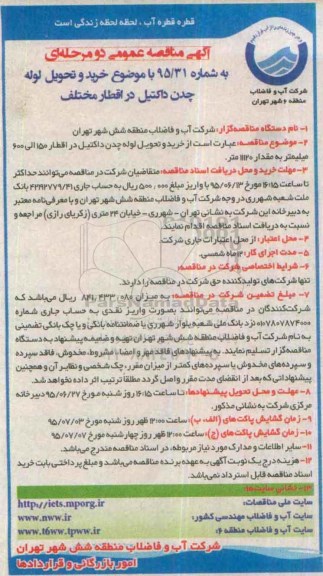 قطره قطره آب ، لحظه لحظه زندگی است
آگهی مناقصه عمومی دو مرحله‌ای
به شماره ۹۵/۳۱ با موضوع خرید و تحویل لوله
چدن داکتیل در اقطار مختلف
شرکت آب و فاضلاب
منطقه ۶ شهر تهران
۱- نام دستگاه مناقصه‌گزار: شرکت آب و فاضلاب منطقه شش شهر تهران
۲- موضوع مناقصه: عبارت است از خرید و تحویل لوله چدن داکتیل در اقطار ۱۵۰ الی ۶۰۰
میلیمتر به مقدار ۱۱۱۲۰ متر.
۳- مهلت خرید و محل دریافت اسناد مناقصه: متقاضیان شرکت در مناقصه می‌توانند حداکثر
تا ساعت ۱۶:۱۵ مورخ ۹۵/۰۶/۱۳ با واریز مبلغ ۵۰۰،۰۰۰ ریال به حساب جاری ۴۲۴۲۷۷۹/۴۱ بانک
ملت شعبه شهرری در وجه شرکت آب و فاضلاب منطقه شش شهر تهران و با معرفی‌نامه معتبر
به دبیرخانه این شرکت به نشانی تهران - شهرری - خیابان ۲۴ متری (زکریای رازی) مراجعه و
نسبت به دریافت اسناد مناقصه اقدام نمایند.
۴- محل اعتبار: از محل اعتبارات جاری شرکت.
۵- مدت اجرای کار: ماه شمسی.
۶- شرایط اختصاصی شرکت در مناقصه:
تنها شرکت‌های تولیدکننده حق شرکت در مناقصه را دارند.
۷- مبلغ تضمین شرکت در مناقصه: به میزان ریال می‌باشد که
شرکت‌کنندگان در مناقصه می‌توانند بصورت واریز نقدی به حساب جاری شماره
نزد بانک ملی شعبه بلوار شهرری یا ضمانتنامه بانکی و یا چک بانکی تضمینی
به نام شرکت آب و فاضلاب منطقه شش شهر تهران تهیه و ضمیمه پیشنهاد به دستگاه
مناقصه‌گزار تسلیم نمایند. به پیشنهادهای فاقد مهر و امضا، مشروط، مخدوش، فاقد سپرده
و سپرده‌های مخدوش یا سپرده‌های کمتر از میزان مقرر، چک شخصی و نظایر آن و همچنین
پیشنهاداتی که بعد از انقضای مدت مقرر واصل گردد مطلقا ترتیب اثر داده نخواهد شد.
۸- مهلت و محل تحویل پیشنهادها: تا ساعت ۱۶:۱۵ روز شنبه مورخ ۹۵/۰۶/۲۷ دبیرخانه
مرکزی شرکت به نشانی مذکور.
۹- زمان گشایش پاکت‌های (الف، ب): ساعت ۱۲:۰۰ ظهر روز شنبه مورخ ۹۵/۰۷/۰۳
۱۰- زمان گشایش پاکت‌های (ج): ساعت ۱۲:۰۰ ظهر روز چهارشنبه مورخ ۹۵/۰۷/۰۷
۱۱- سایر اطلاعات و مدارک مورد نیاز مربوطه، در اسناد مناقصه مندرج می‌باشد.
۱۲- هزینه درج یک نوبت آگهی به عهده برنده مناقصه می‌باشد و مبلغ پرداختی بابت خرید
اسناد مناقصه قابل استرداد نمی‌باشد.
۱۳- نشانی سایت‌ها:
سایت ملی مناقصات: http://iets.mporg.ir
سایت آب و فاضلاب مهندسی کشور: www.nww.ir
سایت آب و فاضلاب منطقه ۶: www.t6ww.tpww.ir
شرکت آب و فاضلاب منطقه شش شهر تهران
امور بازرگانی و قراردادها